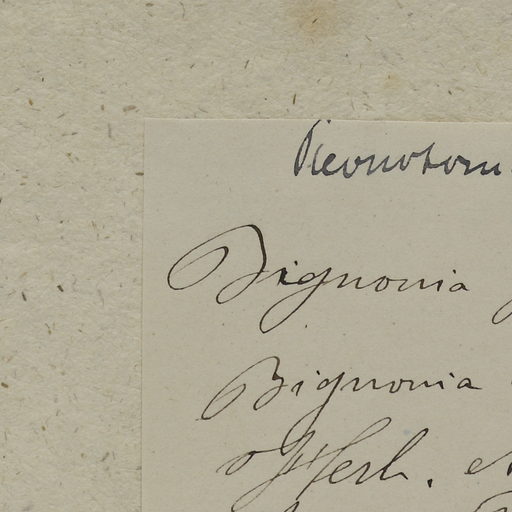 Pleonotom
Bignonia
Bignonia
Herb.